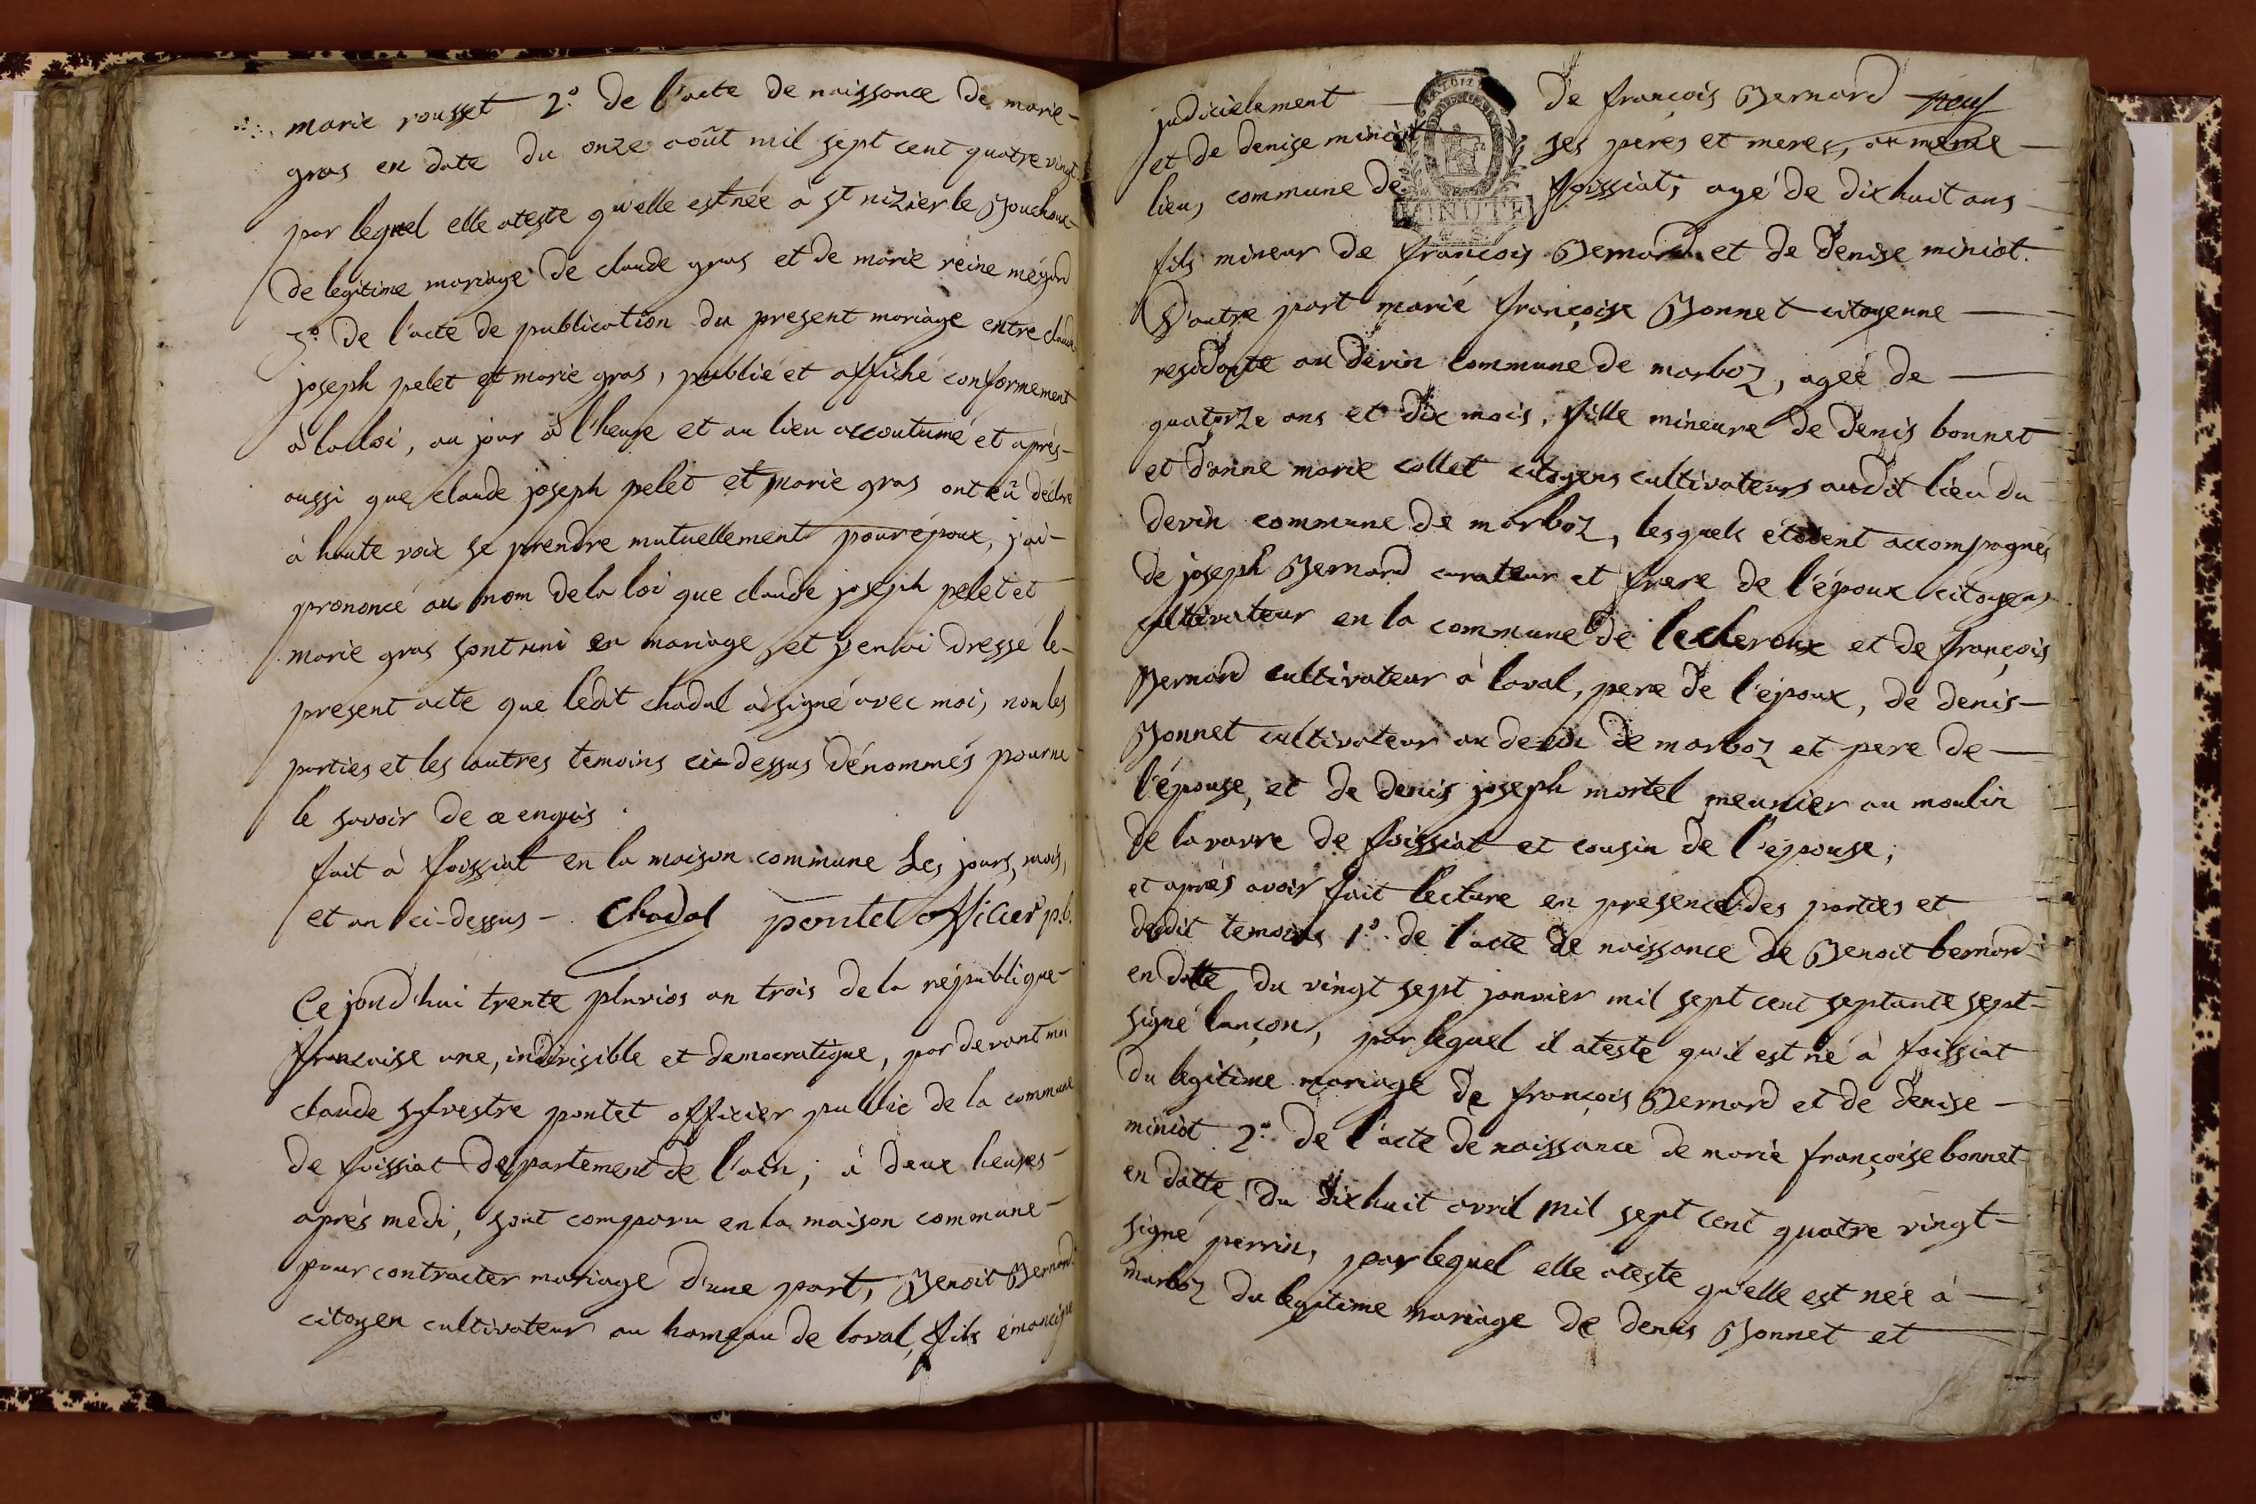 marie rousset 2.° de l'acte de naissance de marie-
gras en date du onze août mil sept cent quatre vingt
par lequel elle ateste qu'elle est née à st nizier le Bouchoux
de legitime mariage de claude gras et de marie réine mégard
3.° de l'acte de publication du present mariage entre claude
joseph pelet et marie gras, publié et affiché conformement
à la loi, au jour à l'heure et au lieu accoutumé et aprés-
aussi que claude joseph pelet et marie gras ont eû déclaré
à haute voix se prendre mutuellement pour époux, j'ai-
prononcé au nom de la loi que claude joseph pelet et
marie gras sont uni en mariage et j'en ai dressé le-
present acte que ledit chadal a signé avec moi, non les
parties et les autres temoins ci-dessus dénommés pour ne
le savoir de ce enquis.
fait à foissiat en la maison commune les jours, mois,
et an ci-dessus - Chadal pontet officier p.b.
Ce jourd'hui trente pluvios an trois de la république-
francaise une, indivisible et democratique, par devant moi
claude sylvestre pontet officier public de la commune
de foissiat departement de l'ain; à deux heures-
aprés medi, sont comparu en la maison commune-
pour contracter mariage d'une part, Benoit Bernard
citoyen cultivateur au hameau de laval, fils émancipé
neuf
judicielement - de françois Bernard
et de denise miniot ses perés et meres, au meme -
lieu, commune de foissiat, agé de dix huit ans -
fils mineur de francois Bernard et de denise miniot.
D'autre part marié françoise Bonnet citoyenne -
residante au devin commune de marboz, ageé de -
quatorze ans et dix mois, fille mineure de denis bonnet
et d'anne marie collet citoyens cultivateurs audit lieu du
devin commune de marboz, lesquels étoient accompagnés
de joseph Bernard curateur et frere de l'époux citoyens
cultivateur en la commune de lecheroux et de françois
Bernard cultivateur à laval, pere de l'époux, de denis-
Bonnet cultivateur au devin de marboz et pere de -
l'épouse, et de denis joseph mortel meunier au moulin
de la varre de foissiat et cousin de l'épouse;
et aprés avoir fait lecture en presence des parties et
dedit temoins 1.° de l'acte de naissance de Benoit bernard-
en datte du vingt sept janvier mil sept cent septante sept-
signé lançon, par lequel il ateste qu'il est né à foissiat
du legitime mariage de françois Bernard et de denise -
miniot 2.° de l'acte de naissance de marie françoise bonnet
en datte du dix huit avril mil sept cent quatre vingt-
signé perrin, par lequel elle ateste qu'elle est née à -
marboz du legitime mariage de denis Bonnet et -
MINUTE